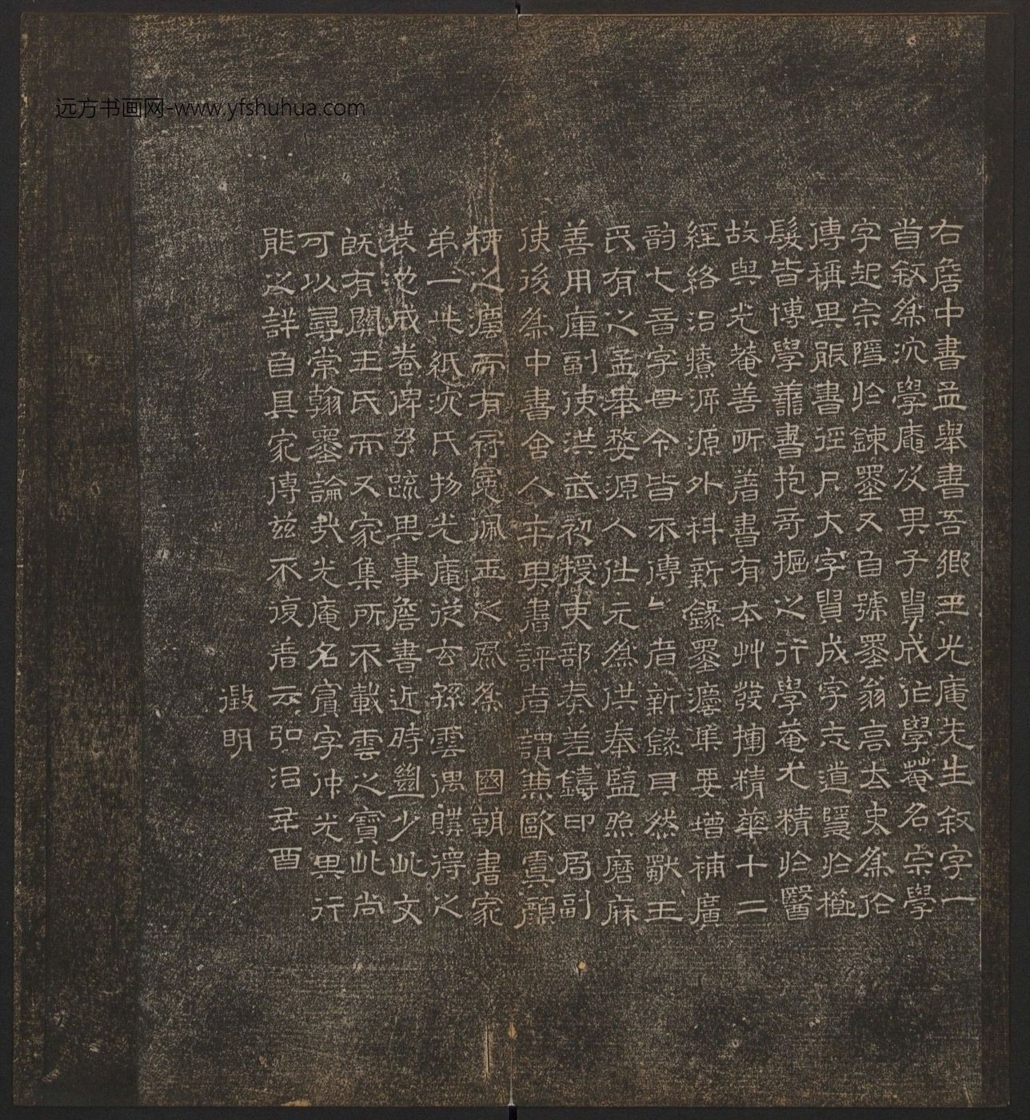 远方书画网-www.yfshuhua.com
右詹中書孟舉書吾鄉王光庵先生叙字一
首叙爲沈學庵及其子貫成作學菴名宗學
字起宗隱於鍊墨又自號墨翁高太史爲作
傳稱其能書徑尺大字貫成字志道隱於
髮皆博學善書抱奇掘之行學菴尤精於醫
故與光菴善所著書有本艸發揮精華十二
經絡治療源外科新錄墨集要增補廣
韵七音字母今皆不傳者新錄耳然歐王
氏有之孟舉婺源人仕元爲供奉監照磨麻
善用庫副使洪武初授吏部奏差鑄印局副
使後爲中書舍人卒其書評者謂兼歐虞顏
柳之而有冠佩玉之風爲 國朝書家
弟一此紙沈氏物光庵從玄孫雲偶購得之
裝池成卷俾予疏其事詹書近時絕少此文
既有關王氏而又家集所不載雲之寶此尚
可以尋常翰墨論哉光庵名賓字仲光其行
能之詳自具家傳兹不復著云弘治辛酉
徵明